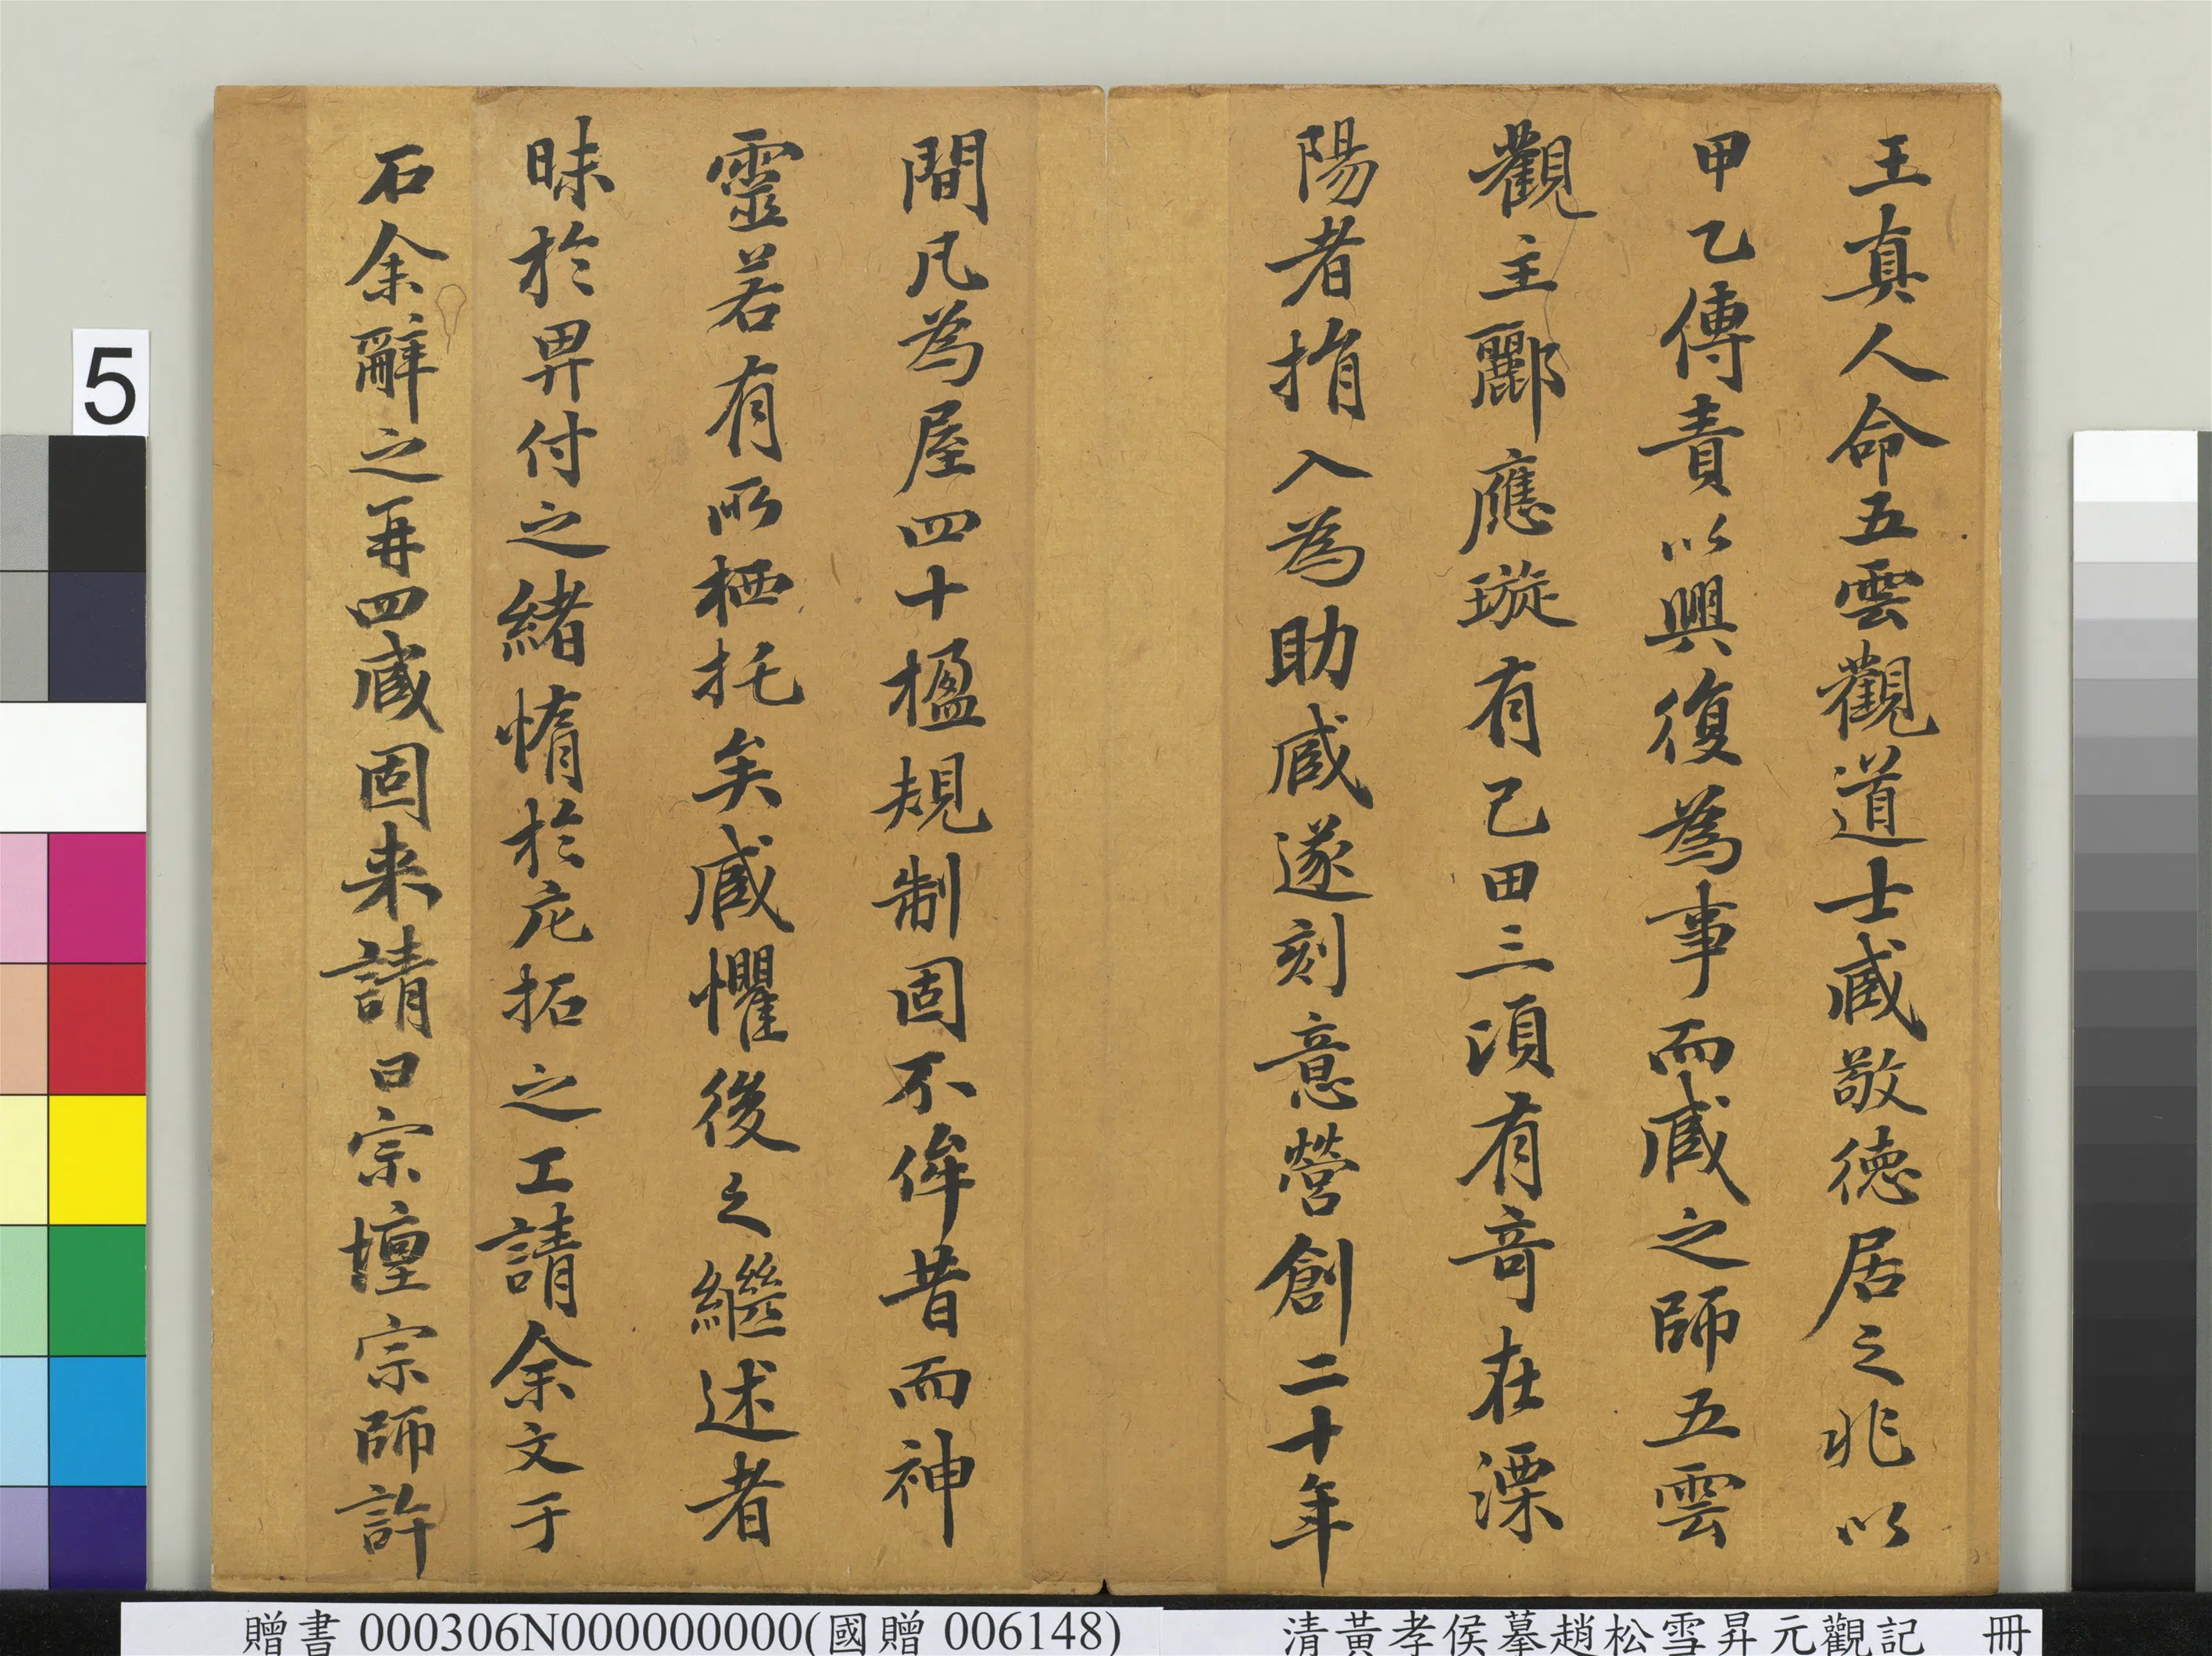 王真人命五雲觀道士臧敬德居之兆以
甲乙傳責以興復為事而臧之師五雲
觀主酈應璇有己田三頃有奇在溧
陽者捐入為助臧遂刻意營創二十年
間凡為屋四十楹規制固不侔昔而神
靈若有所栖托矣臧懼後之繼述者
昧於畀付之緒惰於庀拓之工請余文于
石余辭之再四臧固来請曰宗壇宗師許
5
贈書 000306N000000000(國贈 006148)
清黃孝侯摹趙松雪昇元觀記 冊